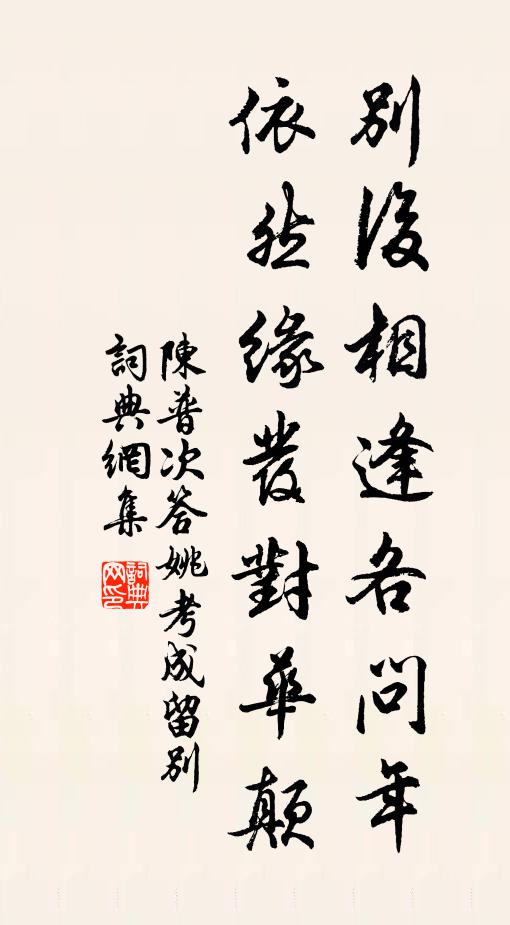 別後相逢各問年
依然緣發對華顛
陳普次答姚考成留別
詞典網集
詞典網印